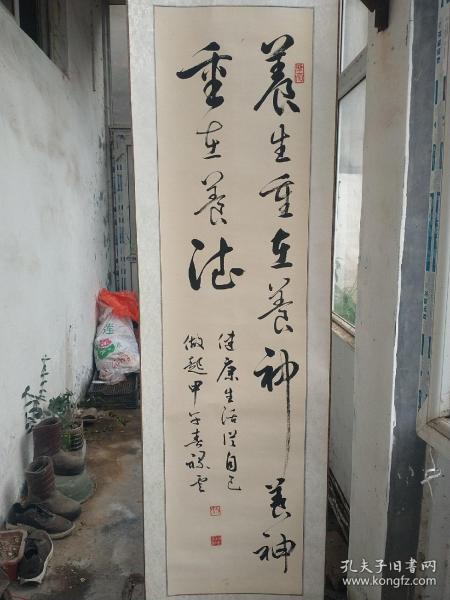 養生重在養神 養神
重在養德
健康生活从自己
做起甲午春
孔夫子旧书网
www.kongfz.com